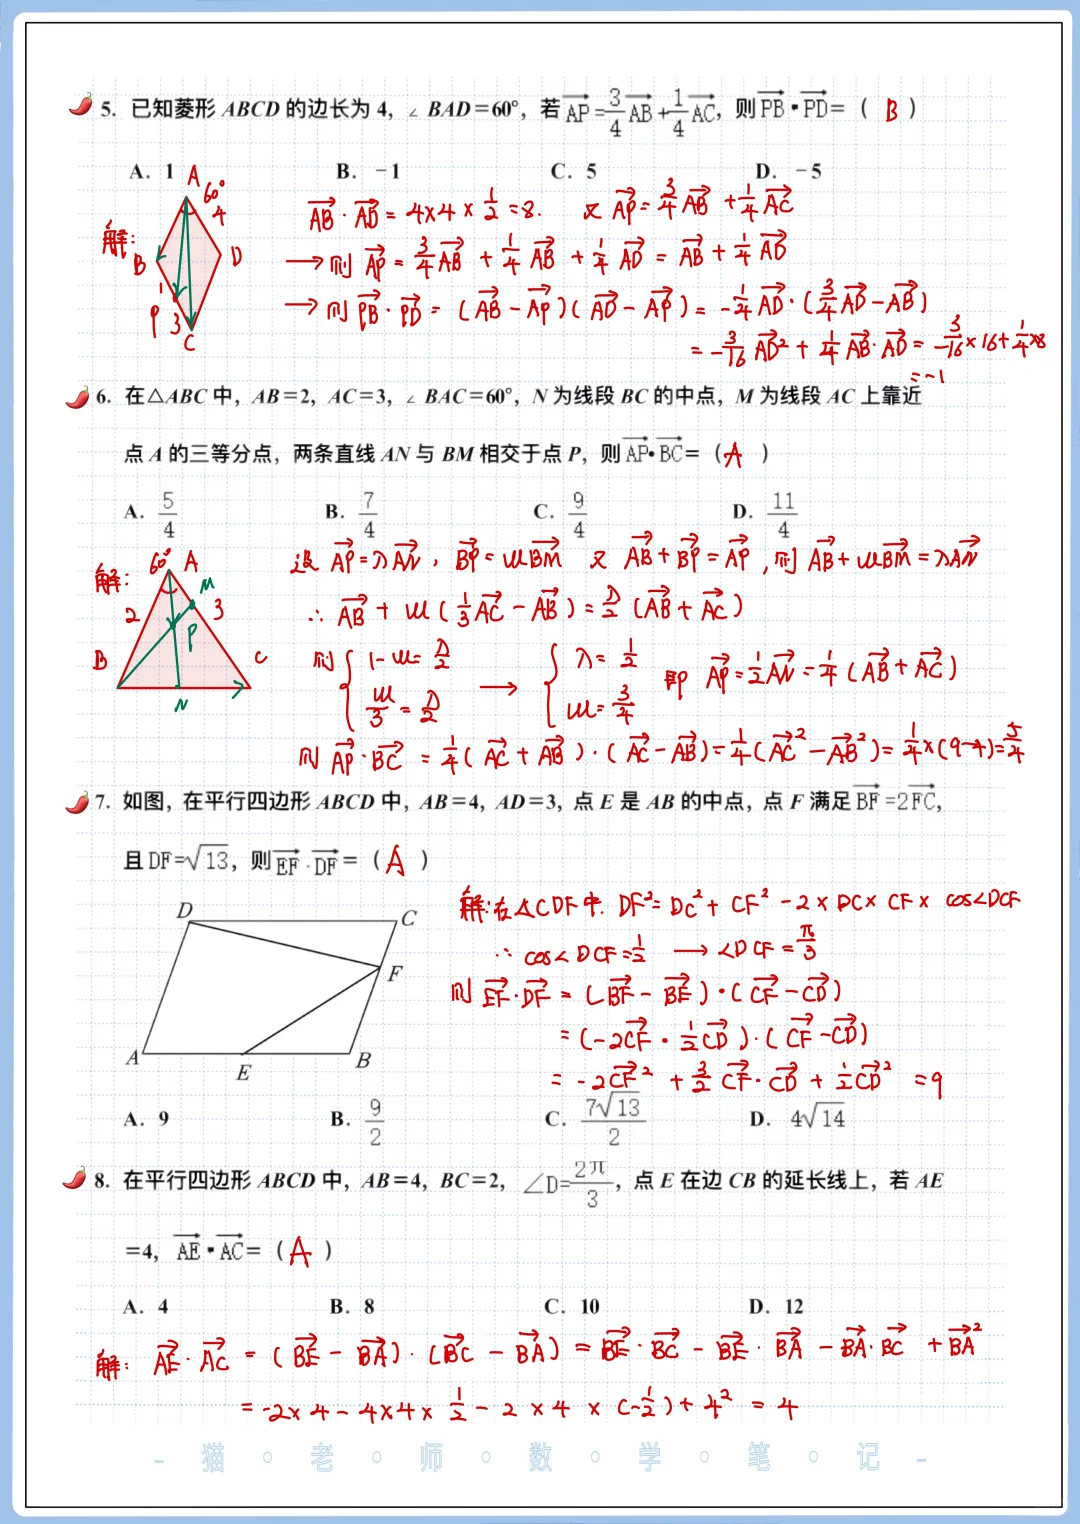 5. 已知菱形 ABCD 的边长为 4，∠ BAD=60°，若 $\overrightarrow{AP}=\frac{3}{4}\overrightarrow{AB}+\frac{1}{4}\overrightarrow{AC}$，则 $\overrightarrow{PB}\cdot\overrightarrow{PD}$=（ B ）
A. 1 B. -1 C. 5 D. -5
解: A 60° 4 B D P 1 3 C
$\overrightarrow{AB}\cdot\overrightarrow{AD}=4\times4\times\frac{1}{2}=8.$ 又 $\overrightarrow{AP}=\frac{3}{4}\overrightarrow{AB}+\frac{1}{4}\overrightarrow{AC}$
→则 $\overrightarrow{AP}=\frac{3}{4}\overrightarrow{AB}+\frac{1}{4}\overrightarrow{AB}+\frac{1}{4}\overrightarrow{AD}=\overrightarrow{AB}+\frac{1}{4}\overrightarrow{AD}$
→则 $\overrightarrow{PB}\cdot\overrightarrow{PD}=(\overrightarrow{AB}-\overrightarrow{AP})(\overrightarrow{AD}-\overrightarrow{AP})=-\frac{1}{4}\overrightarrow{AD}\cdot(\frac{3}{4}\overrightarrow{AD}-\overrightarrow{AB})$
$=-\frac{3}{16}\overrightarrow{AD}^2+\frac{1}{4}\overrightarrow{AB}\cdot\overrightarrow{AD}=-\frac{3}{16}\times16+\frac{1}{4}\times8$
=-1
6. 在△ABC 中，AB=2，AC=3，∠ BAC=60°，N 为线段 BC 的中点，M 为线段 AC 上靠近
点 A 的三等分点，两条直线 AN 与 BM 相交于点 P，则 $\overrightarrow{AP}\cdot\overrightarrow{BC}$=（ A ）
A. $\frac{5}{4}$ B. $\frac{7}{4}$ C. $\frac{9}{4}$ D. $\frac{11}{4}$
解: 60° A M 2 3 P B C N
设 $\overrightarrow{AP}=λ\overrightarrow{AN}$，$\overrightarrow{BP}=μ\overrightarrow{BM}$ 又 $\overrightarrow{AB}+\overrightarrow{BP}=\overrightarrow{AP}$，则 $\overrightarrow{AB}+μ\overrightarrow{BM}=λ\overrightarrow{AN}$
∴ $\overrightarrow{AB}+μ(\frac{1}{3}\overrightarrow{AC}-\overrightarrow{AB})=\frac{λ}{2}(\overrightarrow{AB}+\overrightarrow{AC})$
则 $\begin{cases}1-μ=\frac{λ}{2}\\\frac{μ}{3}=\frac{λ}{2}\end{cases}$ → $\begin{cases}λ=\frac{1}{2}\\μ=\frac{3}{4}\end{cases}$ 即 $\overrightarrow{AP}=\frac{1}{2}\overrightarrow{AN}=\frac{1}{4}(\overrightarrow{AB}+\overrightarrow{AC})$
则 $\overrightarrow{AP}\cdot\overrightarrow{BC}=\frac{1}{4}(\overrightarrow{AC}+\overrightarrow{AB})\cdot(\overrightarrow{AC}-\overrightarrow{AB})=\frac{1}{4}(\overrightarrow{AC}^2-\overrightarrow{AB}^2)=\frac{1}{4}\times(9-4)=\frac{5}{4}$
7. 如图，在平行四边形 ABCD 中，AB=4，AD=3，点 E 是 AB 的中点，点 F 满足 $\overrightarrow{BF}=2\overrightarrow{FC}$，
且 DF=$\sqrt{13}$，则 $\overrightarrow{EF}\cdot\overrightarrow{DF}$=（ A ）
D C F A E B
解:在△CDF中. $DF^2=DC^2+CF^2-2\times DC\times CF\times cos∠DCF$
∴ cos∠DCF=$\frac{1}{2}$ → ∠DCF=$\frac{π}{3}$
则 $\overrightarrow{EF}\cdot\overrightarrow{DF}=(\overrightarrow{BF}-\overrightarrow{BE})\cdot(\overrightarrow{CF}-\overrightarrow{CD})$
$=(-2\overrightarrow{CF}\cdot\frac{1}{2}\overrightarrow{CD})\cdot(\overrightarrow{CF}-\overrightarrow{CD})$
$=-2\overrightarrow{CF}^2+\frac{3}{2}\overrightarrow{CF}\cdot\overrightarrow{CD}+\frac{1}{2}\overrightarrow{CD}^2=9$
A. 9 B. $\frac{9}{2}$ C. $\frac{7\sqrt{13}}{2}$ D. $4\sqrt{14}$
8. 在平行四边形 ABCD 中，AB=4，BC=2，∠D=$\frac{2π}{3}$，点 E 在边 CB 的延长线上，若 AE
=4，$\overrightarrow{AE}\cdot\overrightarrow{AC}$=（ A ）
A. 4 B. 8 C. 10 D. 12
解: $\overrightarrow{AE}\cdot\overrightarrow{AC}=(\overrightarrow{BE}-\overrightarrow{BA})\cdot(\overrightarrow{BC}-\overrightarrow{BA})=\overrightarrow{BE}\cdot\overrightarrow{BC}-\overrightarrow{BE}\cdot\overrightarrow{BA}-\overrightarrow{BA}\cdot\overrightarrow{BC}+\overrightarrow{BA}^2$
$=-2\times4-4\times4\times\frac{1}{2}-2\times4\times(-\frac{1}{2})+4^2=4$
- 猫 · 老 · 师 · 数 · 学 · 笔 · 记 -